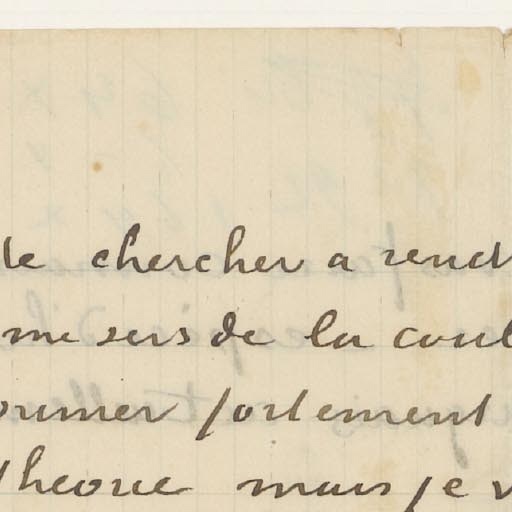 de chercher a rend
me sers de la coul
primer fortement
theorie mais je v